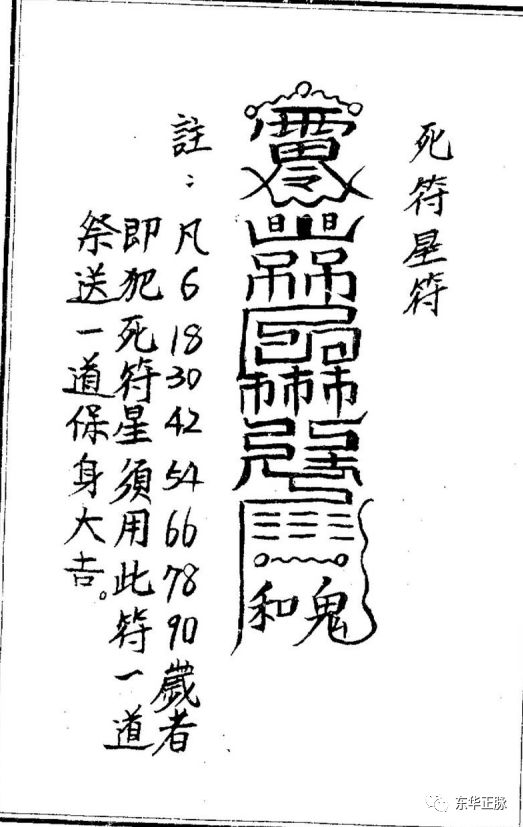 死符星符
註：凡6 18 30 42 54 66 78 90歲者
即犯死符星須用此符一道
祭送一道保身大吉。
和鬼
东华正脉